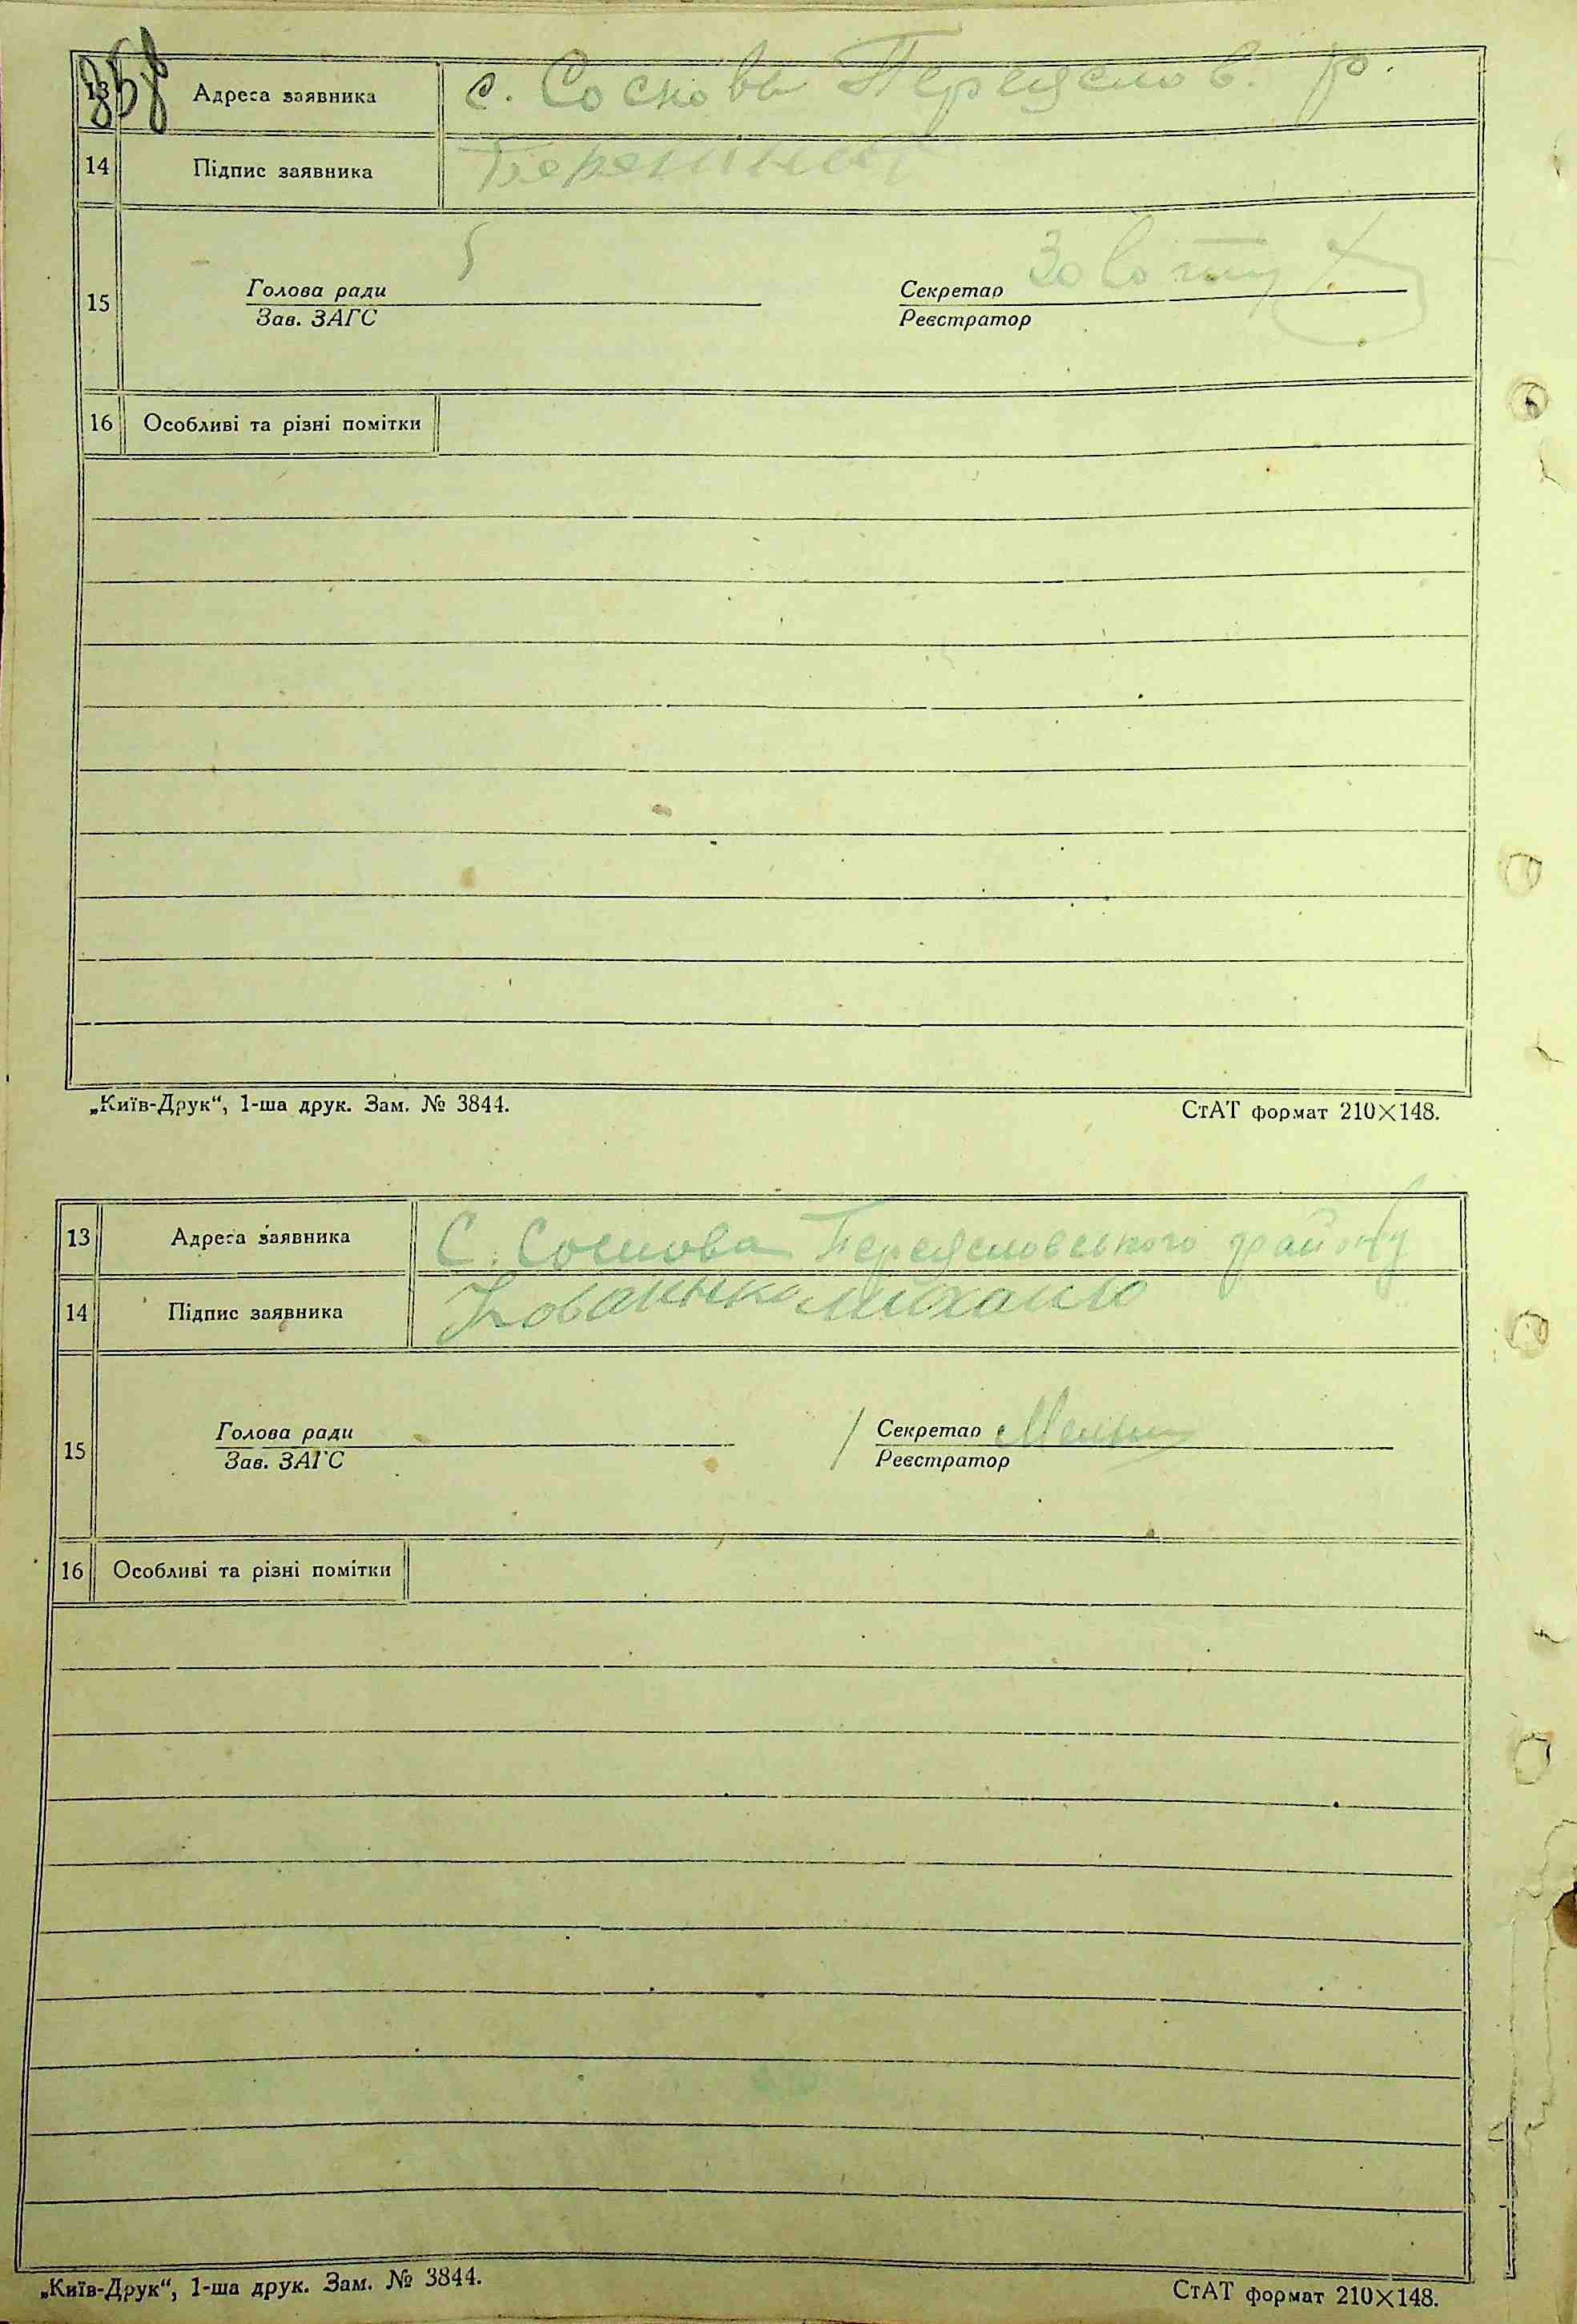 358
13 Адреса заявника с. Соснова Переяслов. р.
14 Підпис заявника
15 Голова ради Секретар
Зав. ЗАГС Реєстратор
16 Особливі та різні помітки
„Київ-Друк“, 1-ша друк. Зам. № 3844. СтАТ формат 210×148.
13 Адреса заявника С. Соснова Переясловського району
14 Підпис заявника Коваленко Михайло
15 Голова ради Секретар
Зав. ЗАГС Реєстратор
16 Особливі та різні помітки
„Київ-Друк“, 1-ша друк. Зам. № 3844. СтАТ формат 210×148.